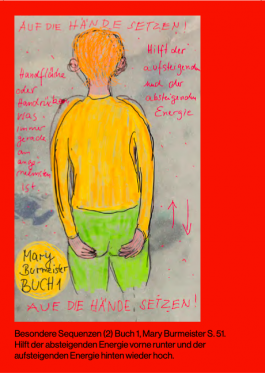 AUF DIE HÄNDE SETZEN!
Handfläche
oder
Handrücken
Was
immer
gerade
am
ange-
nehmsten
ist
Hilft der
aufsteigenden
und der
absteigenden
Energie
Mary
Burmeister
BUCH 1
AUF DIE HÄNDE SEIZEN!
Besondere Sequenzen (2) Buch 1, Mary Burmeister S. 51.
Hilft der absteigenden Energie vorne runter und der
aufsteigenden Energie hinten wieder hoch.